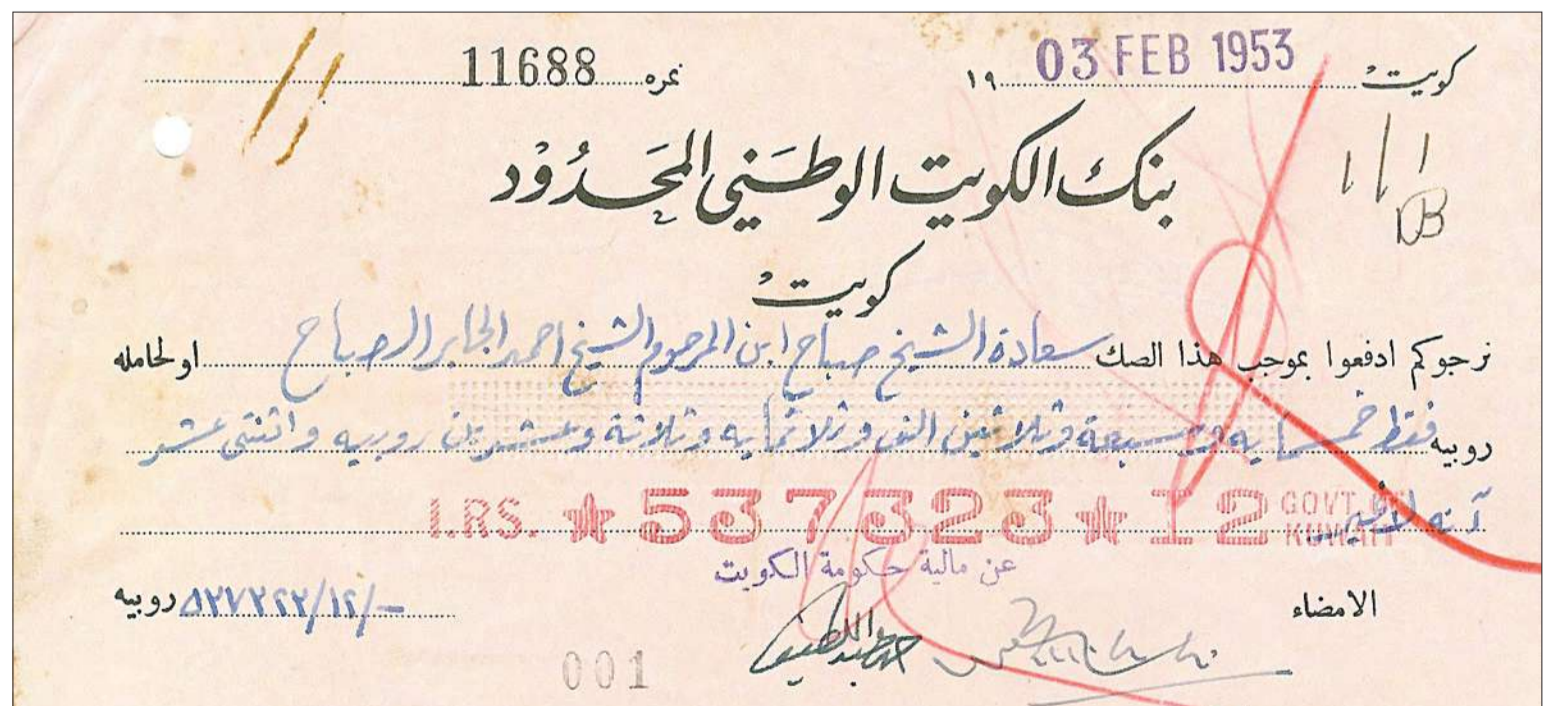 كويت 03 FEB 1953 ١٩ نمره 11688
بنك الكويت الوطني المحدود
كويت
نرجوكم ادفعوا بموجب هذا الصك سعادة الشيخ صباح ابن المرحوم الشيخ احمد الجابر الصباح او لحامله
روبيه فقط خمسمايه وسبعة وثلاثين الف وثلاثمايه وثلاثة وعشرين روبيه واثنتى عشر
آنه لاغير
I.RS. ★537323★12 GOVT. OF KUWAIT
عن مالية حكومة الكويت
الامضاء ٥٣٧٣٢٣/١٢/- روبيه
001